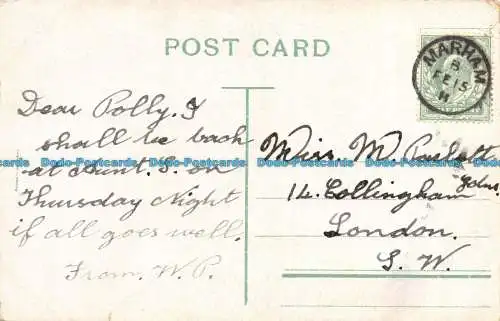 POST CARD
MARHAM
B
FE 15
11
Dear Polly. I
shall be back
at Aunt. S. on
Thursday Night
if all goes well.
From. W. P.
Miss M
14. Collingham
Gdns.
London.
S. W.
Dodo-Postcards Dodo-Postcards Dodo-Postcards Dodo-Postcards Dodo-Postcards Dodo-Postcards